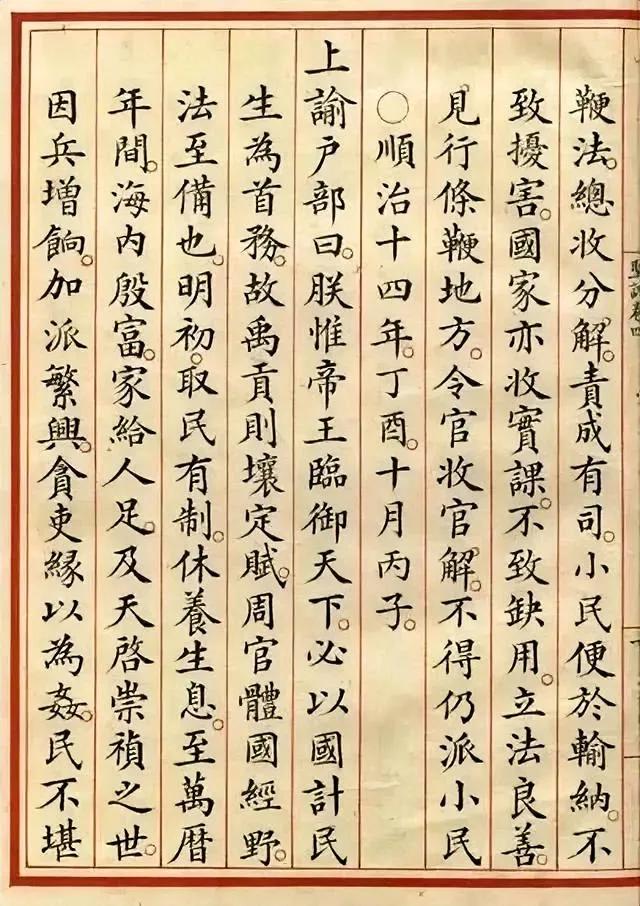 鞭法。總收分解。責成有司。小民便於輸納。不
致擾害。國家亦收實課。不致缺用。立法良善。
見行條鞭地方。令官收官解。不得仍派小民
○順治十四年。丁酉。十月丙子。
上諭戶部曰。朕惟帝王臨御天下。必以國計民
生為首務。故禹貢則壤定賦。周官體國經野。
法至備也。明初。取民有制。休養生息。至萬曆
年間。海內殷富。家給人足。及天啓崇禎之世。
因兵增餉。加派繁興。貪吏緣以為姦。民不堪